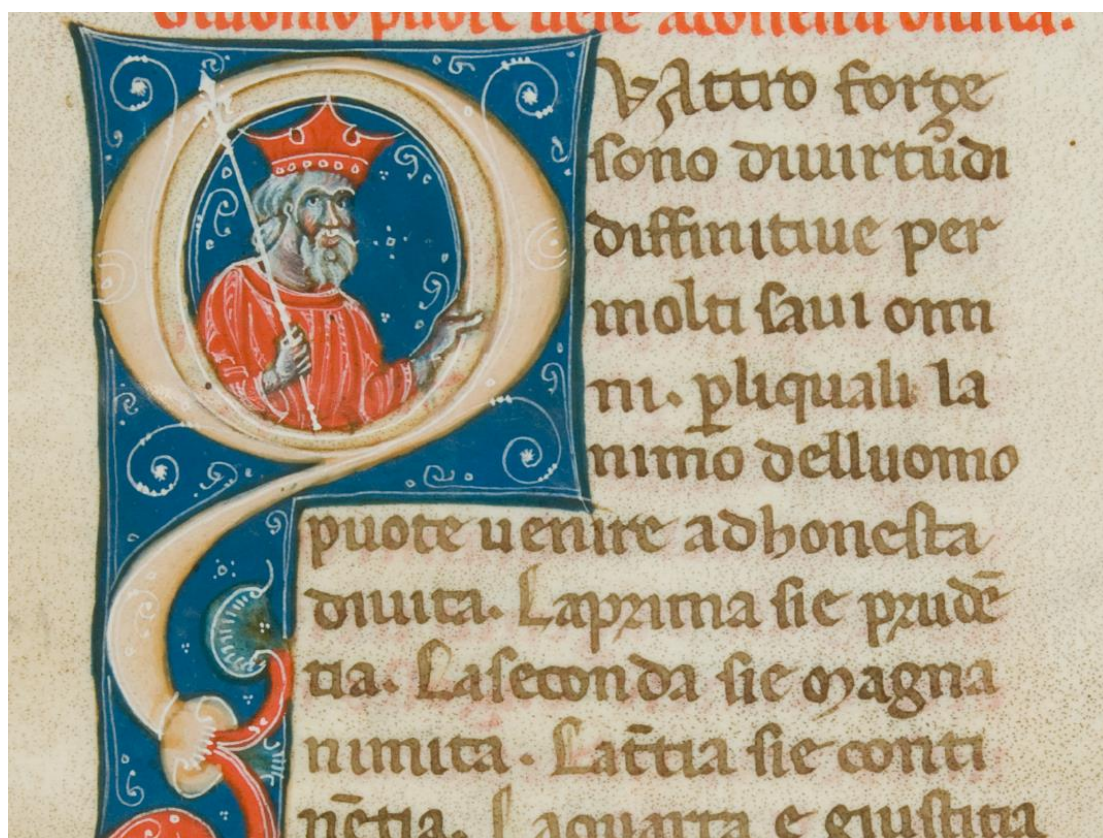 puote diuita.
QVAttro forçe
sono diuirtūdi
diffinitiue per
molti saui omi
ni. ꝑliquali la
nimo delluomo
puote uenire adhonesta
diuita. Laprima sie prudē
tia. Laseconda sie Magna
nimita. Lat̄tia sie conti
nētia. Laquarta e giustitia